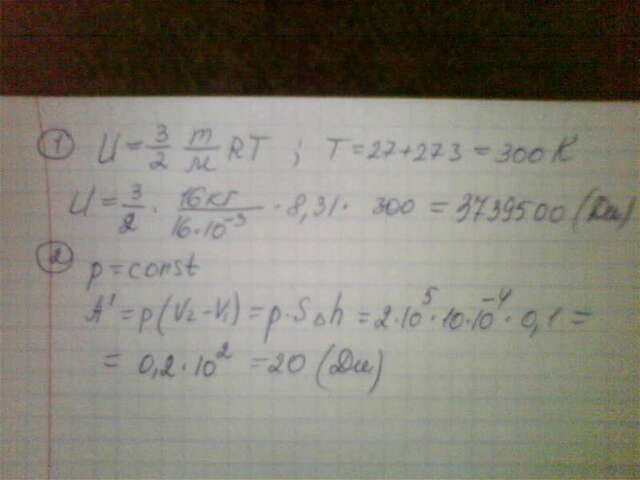 ① U = 3/2 m/μ RT ; T = 27 + 273 = 300 К
U = 3/2 · 16кг/16·10⁻³ · 8,31 · 300 = 3739500 (Дж)
② p = const
A' = p(V₂ - V₁) = p·S△h = 2·10⁵·10·10⁻⁴·0,1 =
= 0,2·10² = 20 (Дж)